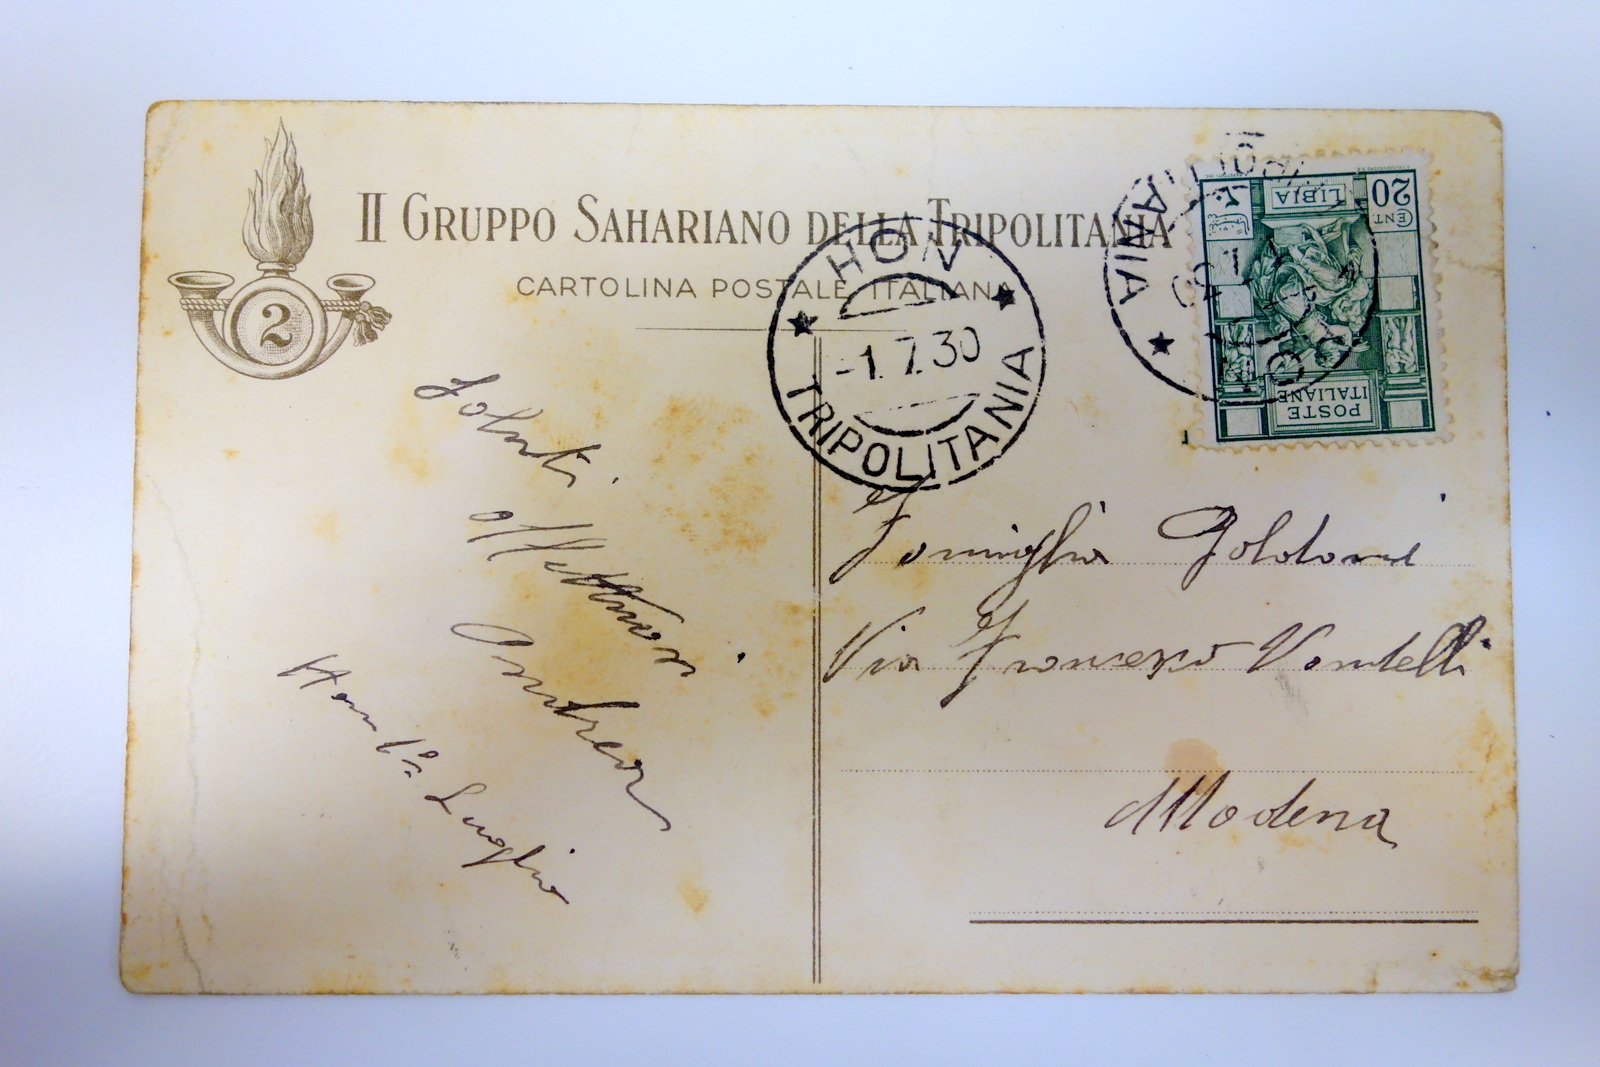 2
II GRUPPO SAHARIANO DELLA TRIPOLITANIA
CARTOLINA POSTALE ITALIANA
HON
-1.7.30
TRIPOLITANIA
20
CENT
LIBIA
POSTE
ITALIANE
HON
TRIPOLITANIA
Saluti
affettuosi
Andrea
Hon 1° Luglio
Famiglia Goldoni
Via Francesco Vandelli
Modena